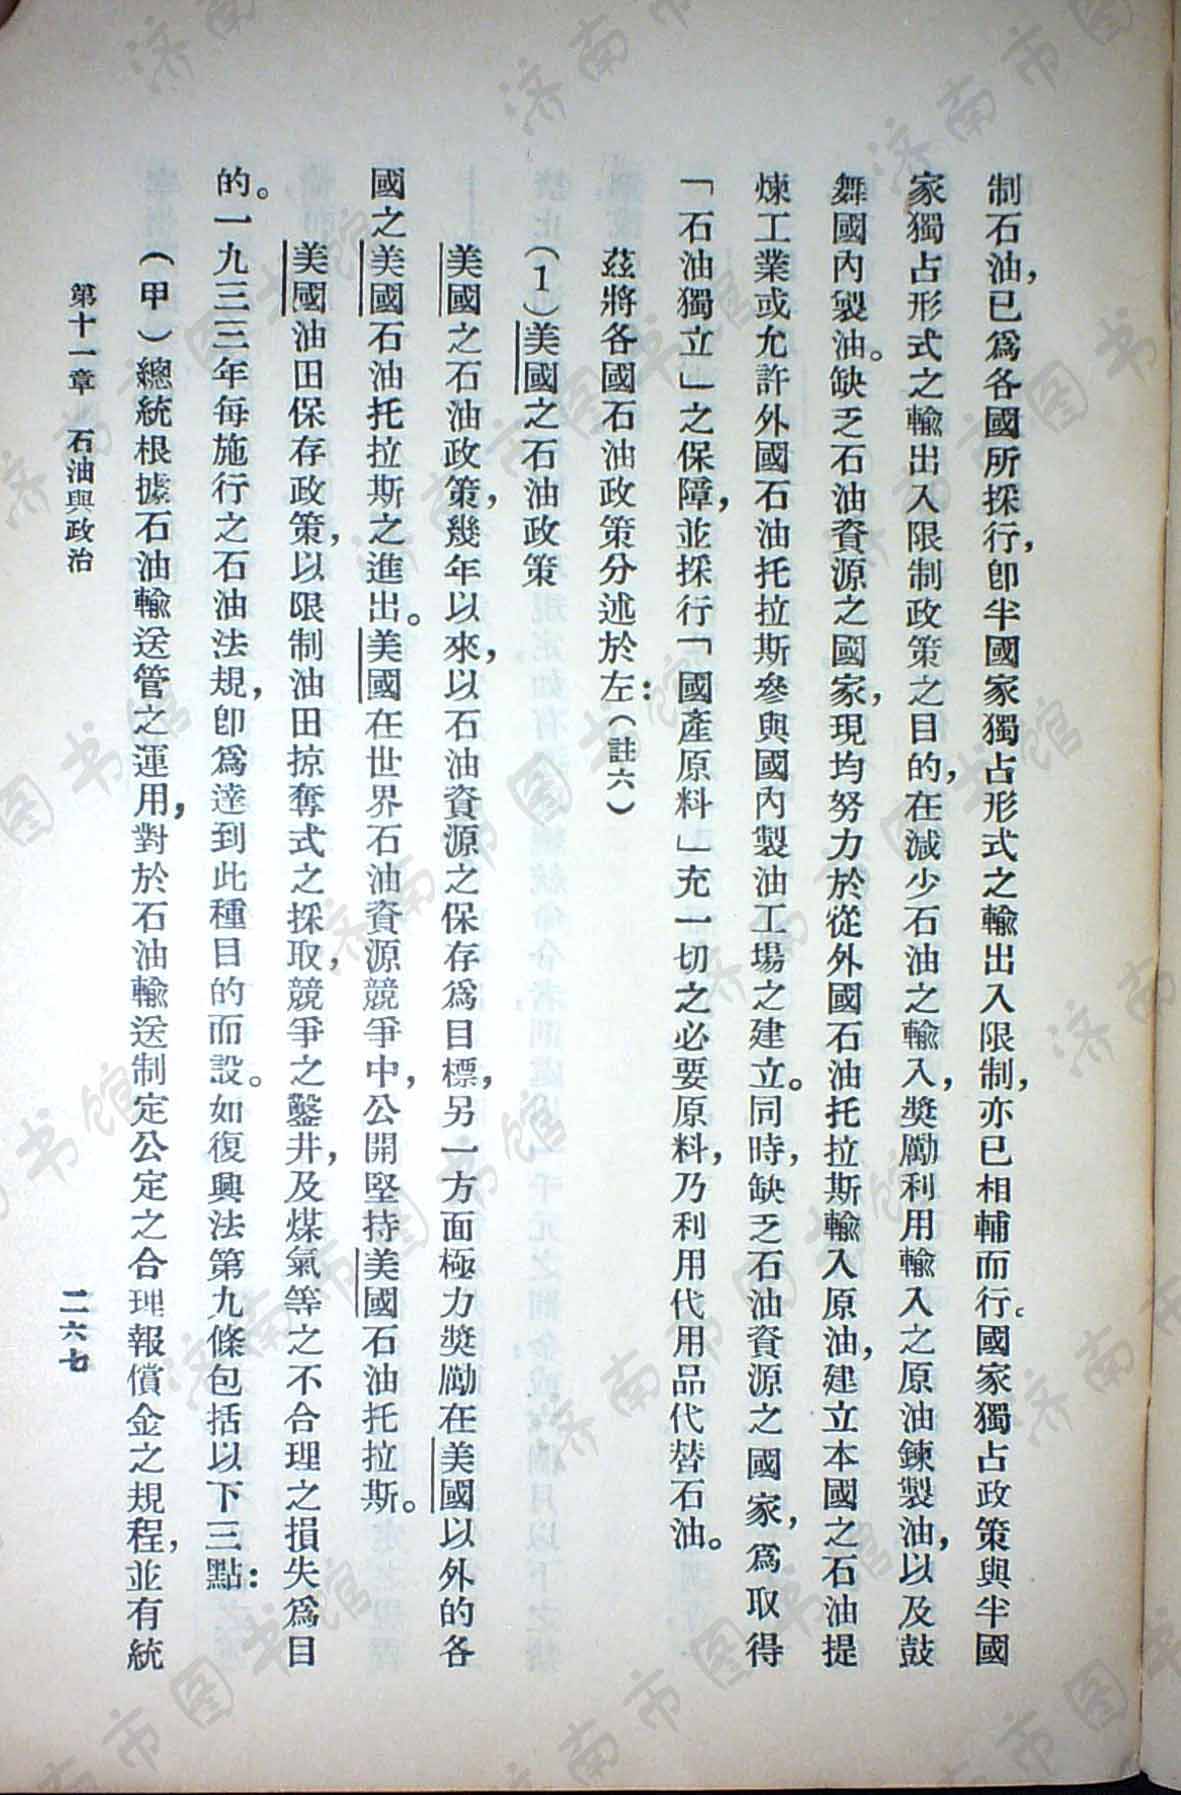 制石油，已爲各國所採行，卽半國家獨占形式之輸出入限制，亦已相輔而行。國家獨占政策與半國
家獨占形式之輸出入限制政策之目的，在減少石油之輸入，獎勵利用輸入之原油鍊製油，以及鼓
舞國內製油。缺乏石油資源之國家，現均努力於從外國石油托拉斯輸入原油，建立本國之石油提
煉工業或允許外國石油托拉斯參與國內製油工場之建立。同時，缺乏石油資源之國家，爲取得
「石油獨立」之保障，並採行「國產原料」充一切之必要原料，乃利用代用品代替石油。
茲將各國石油政策分述於左：（註六）
（1）美國之石油政策
美國之石油政策，幾年以來，以石油資源之保存爲目標，另一方面極力獎勵在美國以外的各
國之美國石油托拉斯之進出。美國在世界石油資源競爭中，公開堅持美國石油托拉斯。
美國油田保存政策，以限制油田掠奪式之採取，競爭之鑿井，及煤氣等之不合理之損失爲目
的。一九三三年每施行之石油法規，卽爲達到此種目的而設。如復興法第九條包括以下三點：
（甲）總統根據石油輸送管之運用，對於石油輸送制定公定之合理報償金之規程，並有統
第十一章　石油與政治
二六七
济南市图书馆